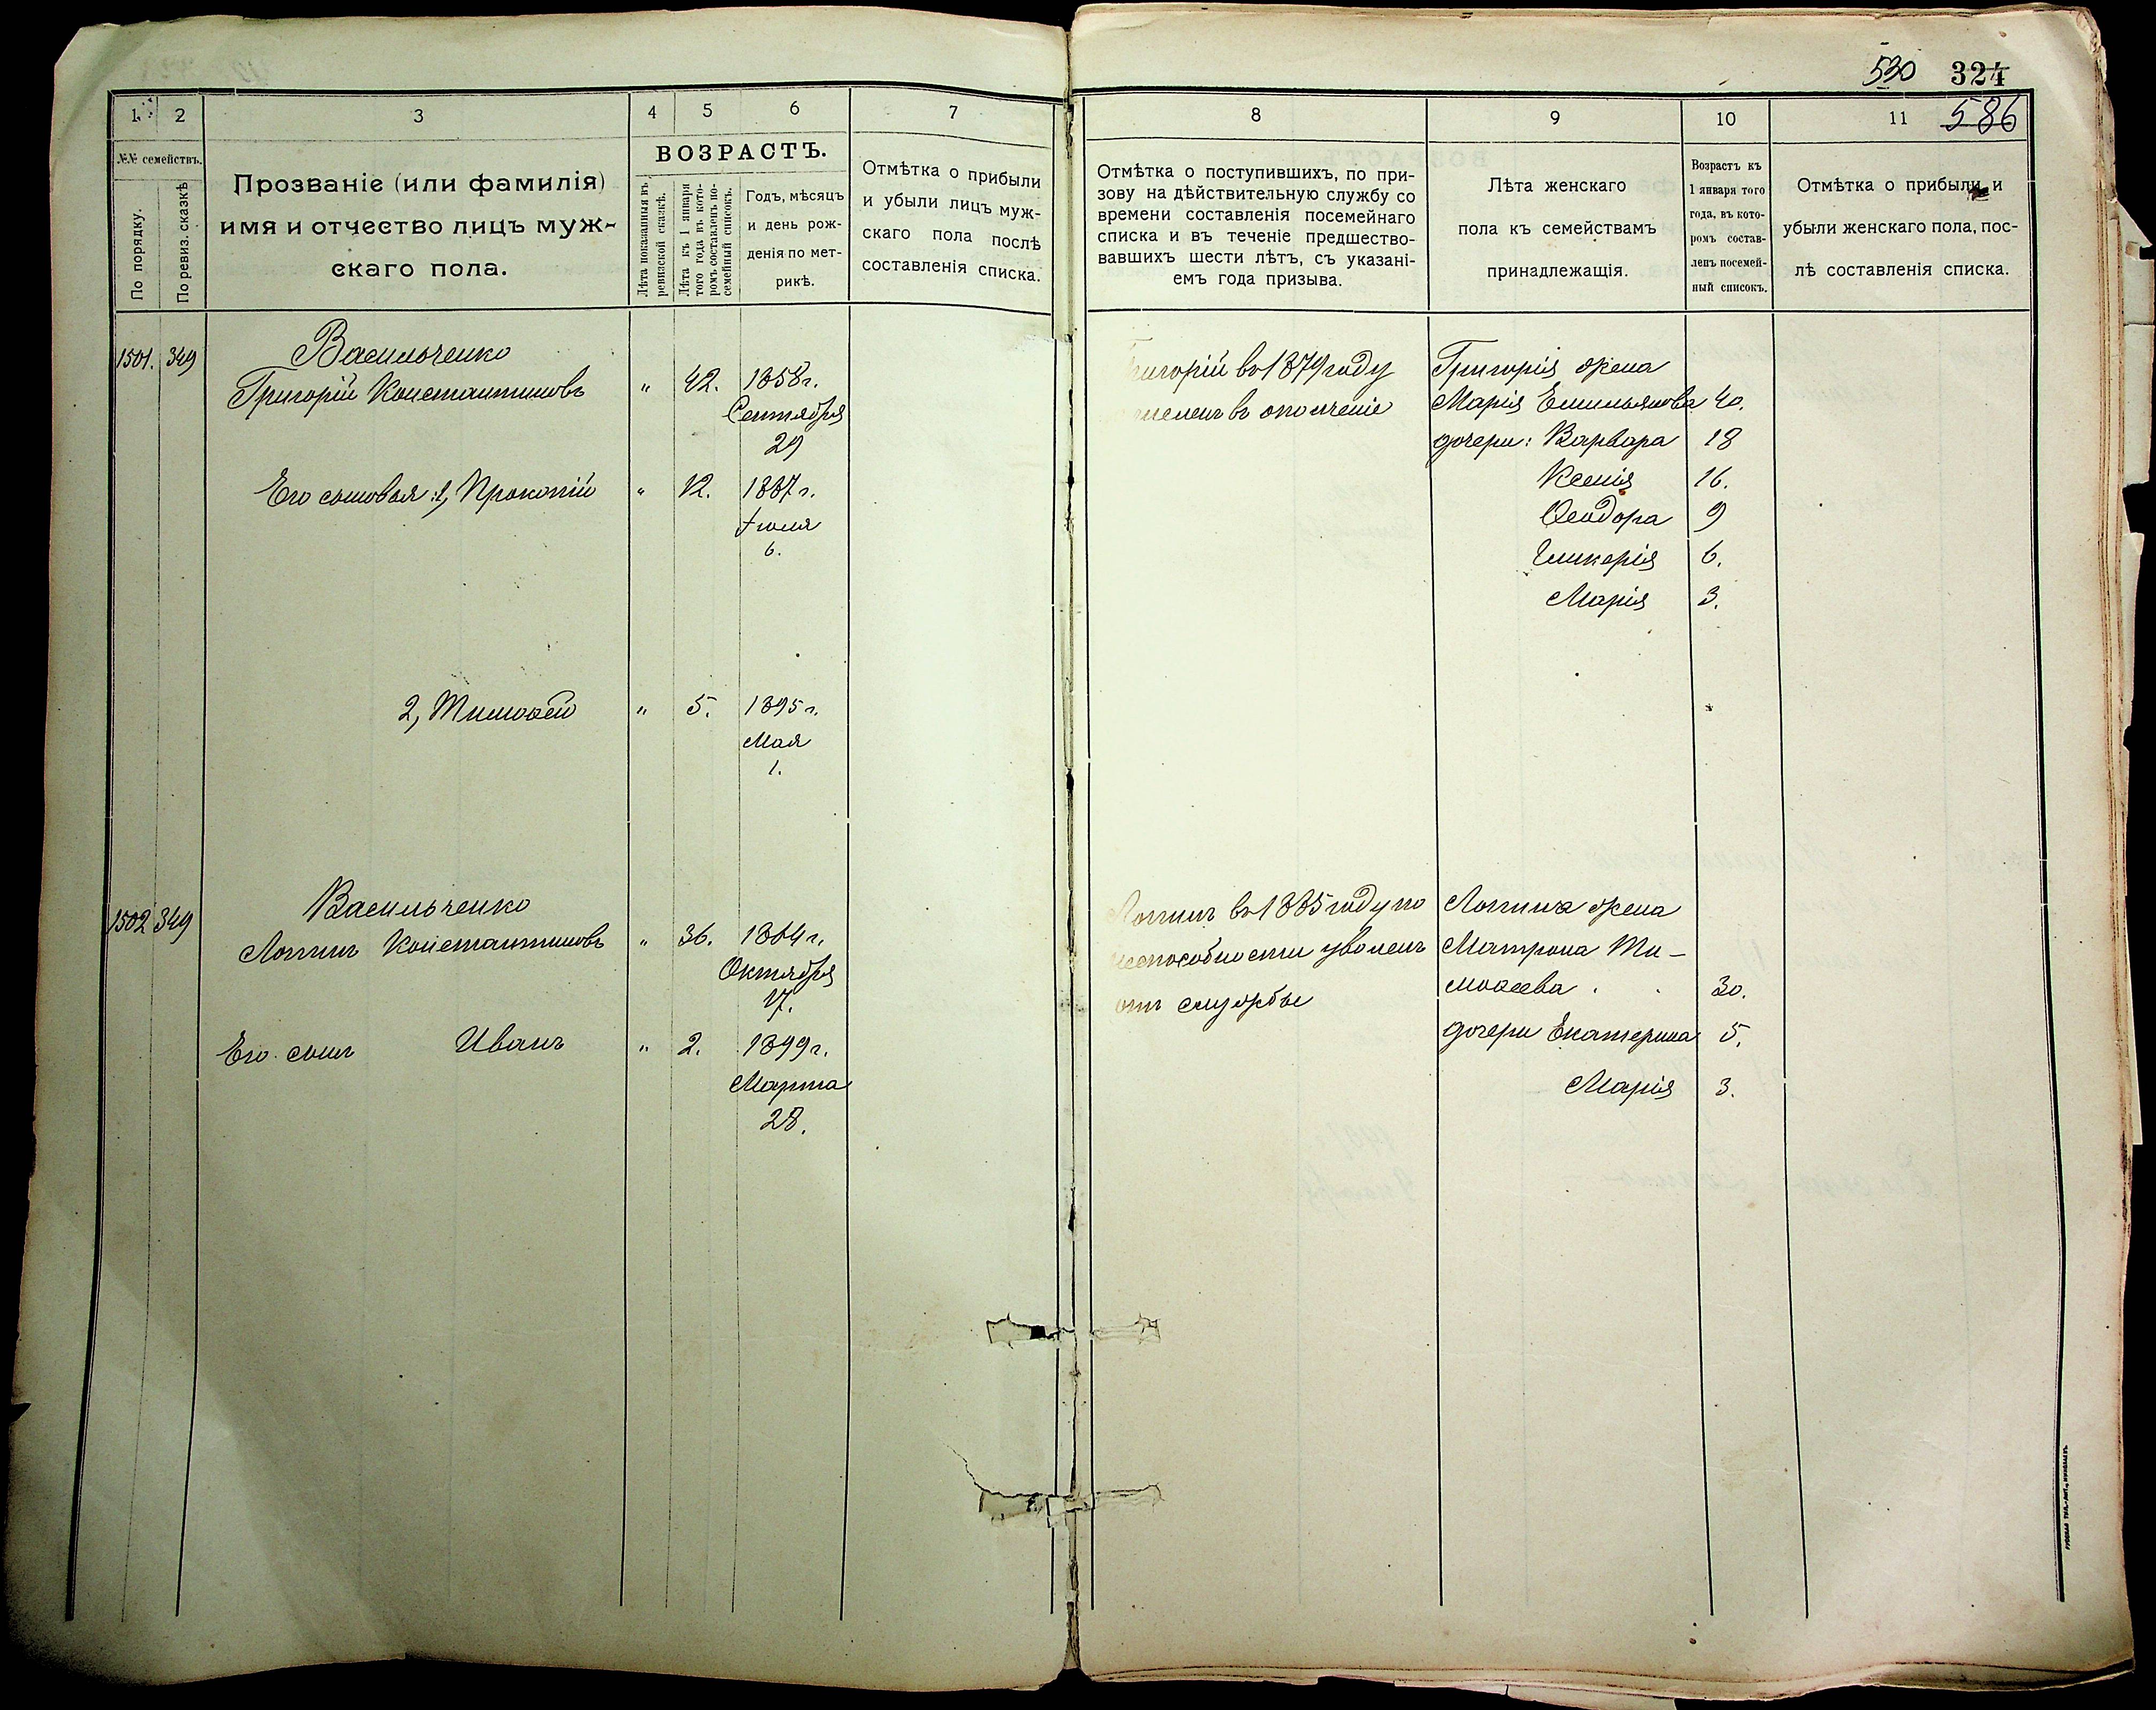 530 324
586
1 2 3 4 5 6 7 8 9 10 11
№№ семействъ.
По порядку.
По ревиз. сказкѣ
Прозваніе (или фамилія)
имя и отчество лицъ муж-
скаго пола.
ВОЗРАСТЪ.
Лѣта показанныя въ
ревизской сказкѣ.
Лѣта къ 1 января
того года въ кото-
ромъ составленъ по-
семейный списокъ.
Годъ, мѣсяцъ
и день рож-
денія по мет-
рикѣ.
Отмѣтка о прибыли
и убыли лицъ муж-
скаго пола послѣ
составленія списка.
Отмѣтка о поступившихъ, по при-
зову на дѣйствительную службу со
времени составленія посемейнаго
списка и въ теченіе предшество-
вавшихъ шести лѣтъ, съ указані-
емъ года призыва.
Лѣта женскаго
пола къ семействамъ
принадлежащія.
Возрастъ къ
1 января того
года, въ кото-
ромъ состав-
ленъ посемей-
ный списокъ.
Отмѣтка о прибыли и
убыли женскаго пола, пос-
лѣ составленія списка.
1501. 349 Васильченко
Григорій Константиновъ " 42. 1858 г.
Сентября
29
Его сыновья: 1, Прокопій " 12. 1887 г.
Іюля
6.
2, Тимофей " 5. 1895 г.
Мая
1.
Григорій въ 1879 году
въ ополченіе
Григорія жена
Марія Емильянова 40.
дочери: Варвара 18
Ксенія 16.
Ѳеодора 9
Гликерія 6.
Марія 3.
1502 349 Васильченко
Логинъ Константиновъ " 36. 1864 г.
Октября
17.
Его сынъ Иванъ " 2. 1899 г.
Марта
28.
Логинъ въ 1885 году по
неспособности уволенъ
отъ службы
Логина жена
Матрона Ти-
мофеева 30.
дочери Екатерина 5.
Марія 3.